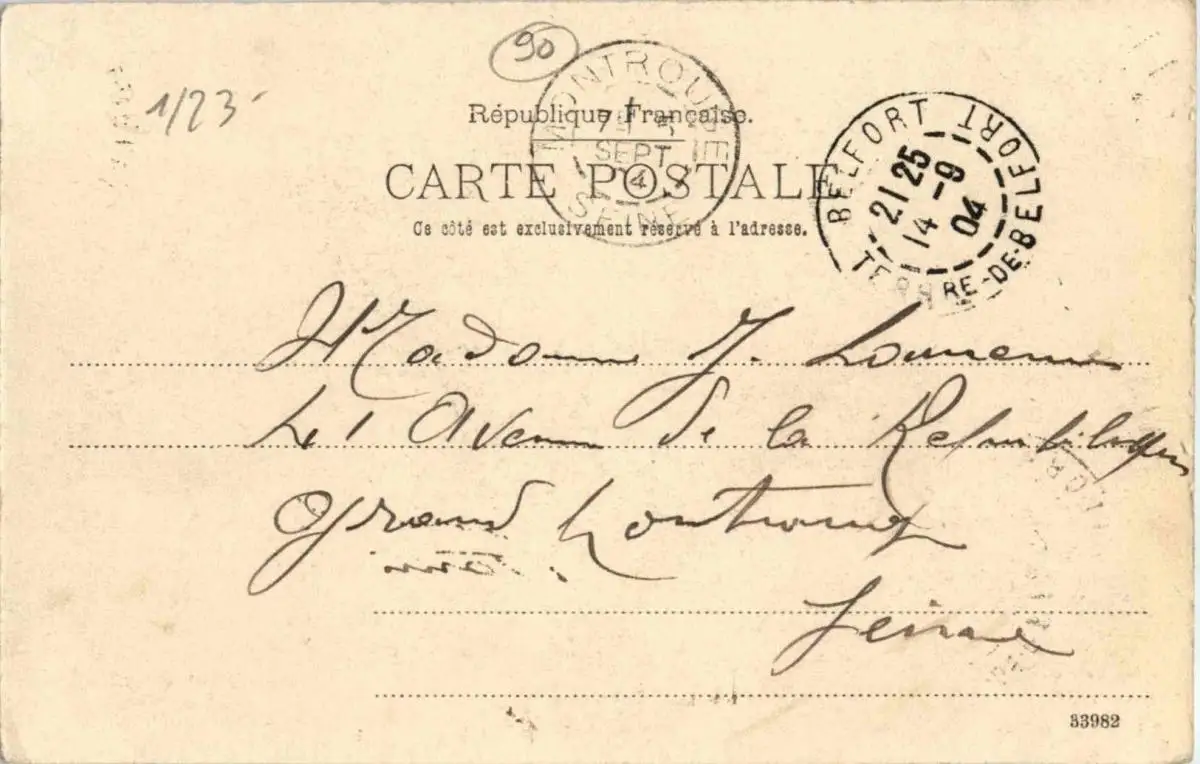 90
1/23
MONTROUGE
7E
SEPT
SEINE
République Française.
CARTE POSTALE
Ce côté est exclusivement réservé à l'adresse.
BELFORT BELFORT
21 25
14 -9
04
TERRE-DE-BELFORT
Madame J.
41 Avenue de la République
Grand Montrouge
Seine
33982